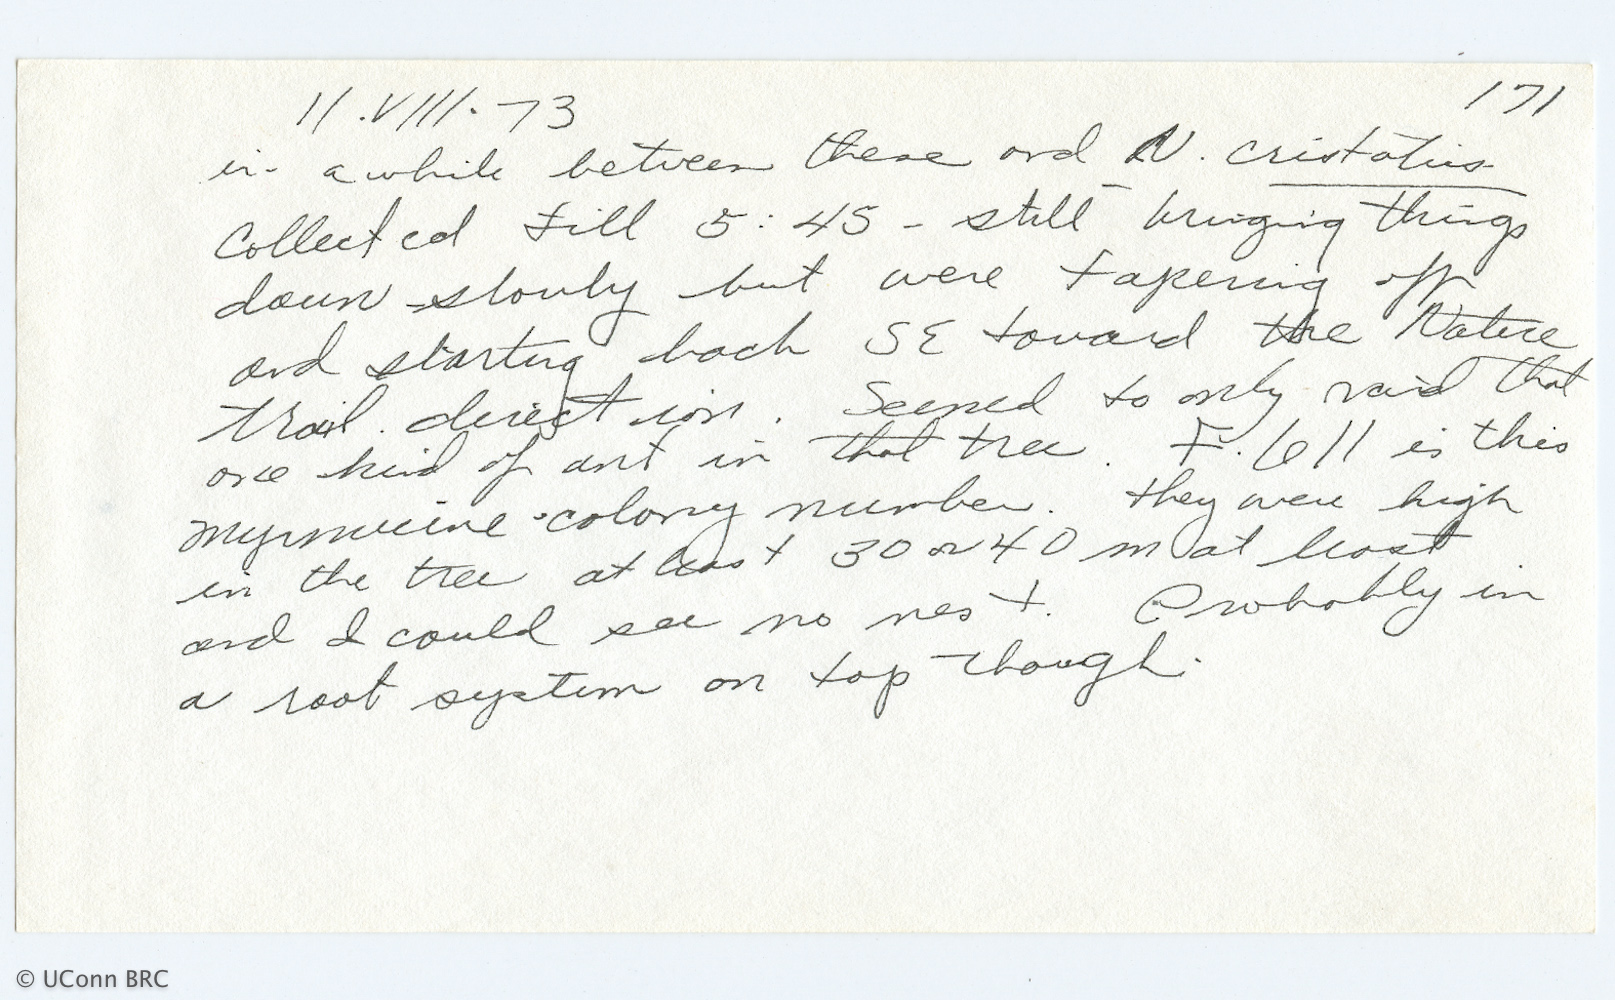 11.VIII.73
171
in a while between these and N. cristatus
Collected till 5:45 - still bringing things
down slowly but were tapering off
and starting back SE toward the Nature
trail direction. Seemed to only raid that
one kind of ant in that tree. F.611 is this
myrmicine colony number. they were high
in the tree at least 30 or 40 m at least
and I could see no nest. Probably in
a root system on top though.
© UConn BRC